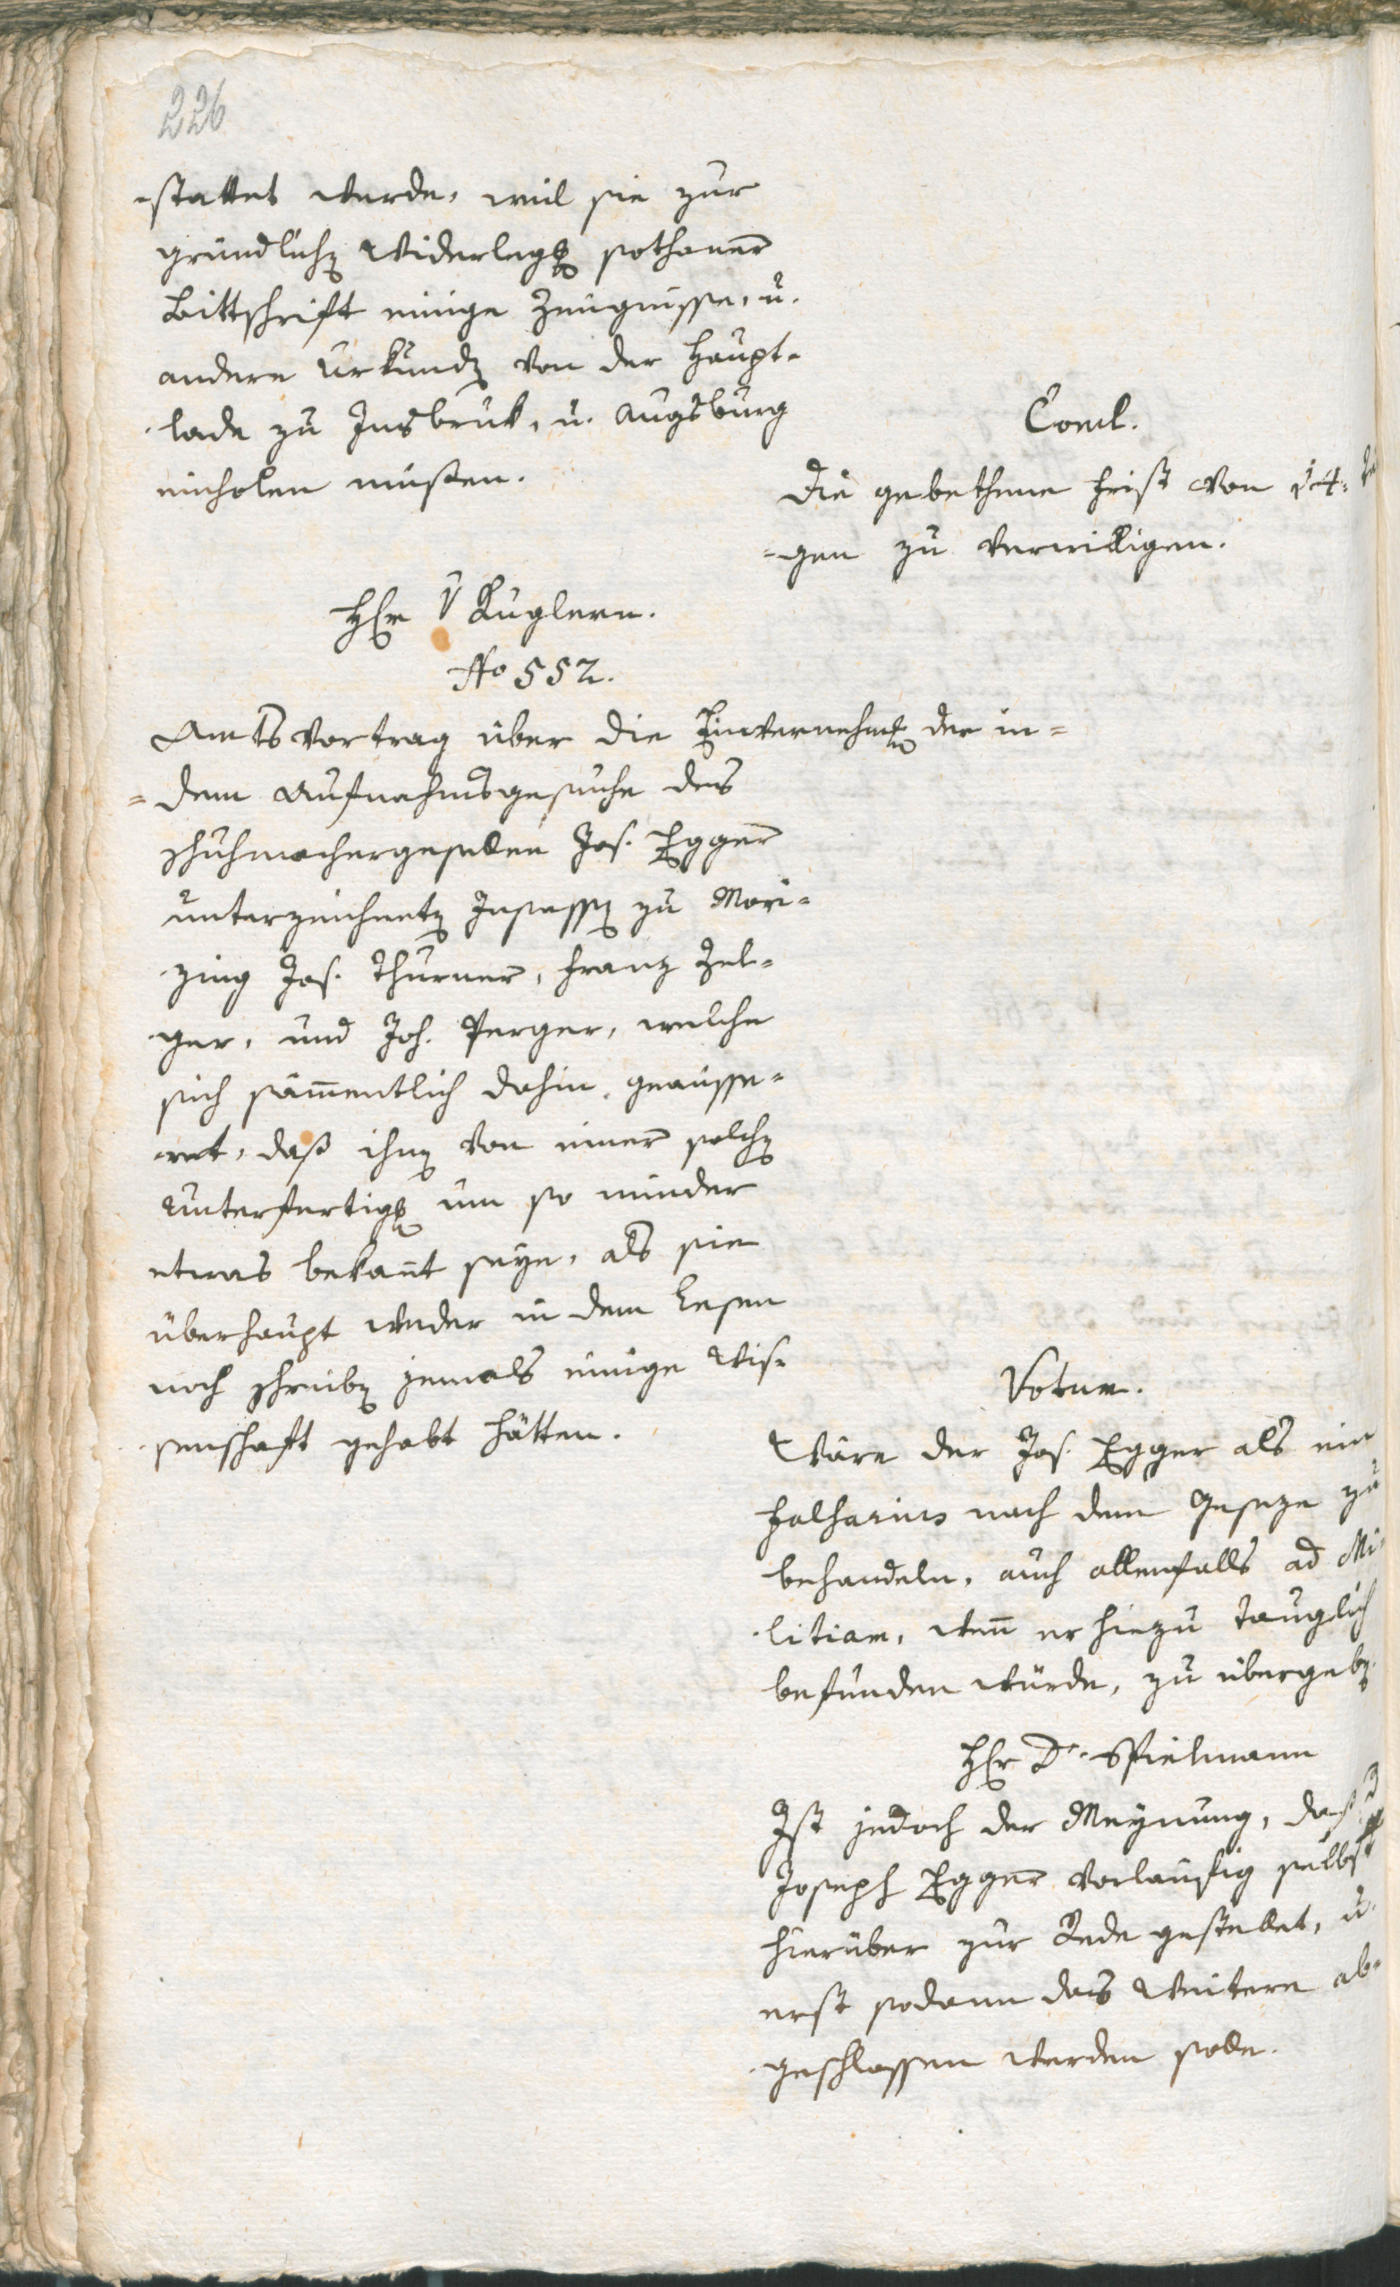 226
stattet werde, weil sie zur
gründlichen Widerlegung sothaner
Bittschrift einige Zeugnisse, u.
andere Urkunden von der Haupt-
lade zu Insbruk, u. Augsburg
einholen müßen.
Concl.
Die gebethene Frist von 14 Ta-
gen zu verwilligen.
Herr v Kuglern.
No 552.
Amtsvortrag über die Einvernehmung der in-
dem Aufnahmsgesuche des
Schuhmachergesellen Jos. Egger
unterzeichneten Insassen zu Mori-
zing Jos. Thurner, Franz Zel-
ger, und Joh. Perger, welche
sich sämmentlich dahin geäusse-
ret, daß ihnen von einer solchen
Unterfertigung um so minder
etwas bekannt seye, als sie
überhaupt weder in dem Lesen
noch schreiben jemals einige Wis-
senschaft gehabt hätten.
Votum.
Wäre der Jos. Egger als ein
Falsarius nach dem Geseze zu
behandeln, auch allenfalls ad Mi-
litiam, wenn er hiezu tauglich
befunden würde, zu übergeben.
Herr Dr. Spielmann
Ist jedoch der Meynung, daß
Joseph Egger vorläufig selbst
hierüber zur Rede gestellet, u.
erst sodann das Weitere ab-
geschlossen werden solle.